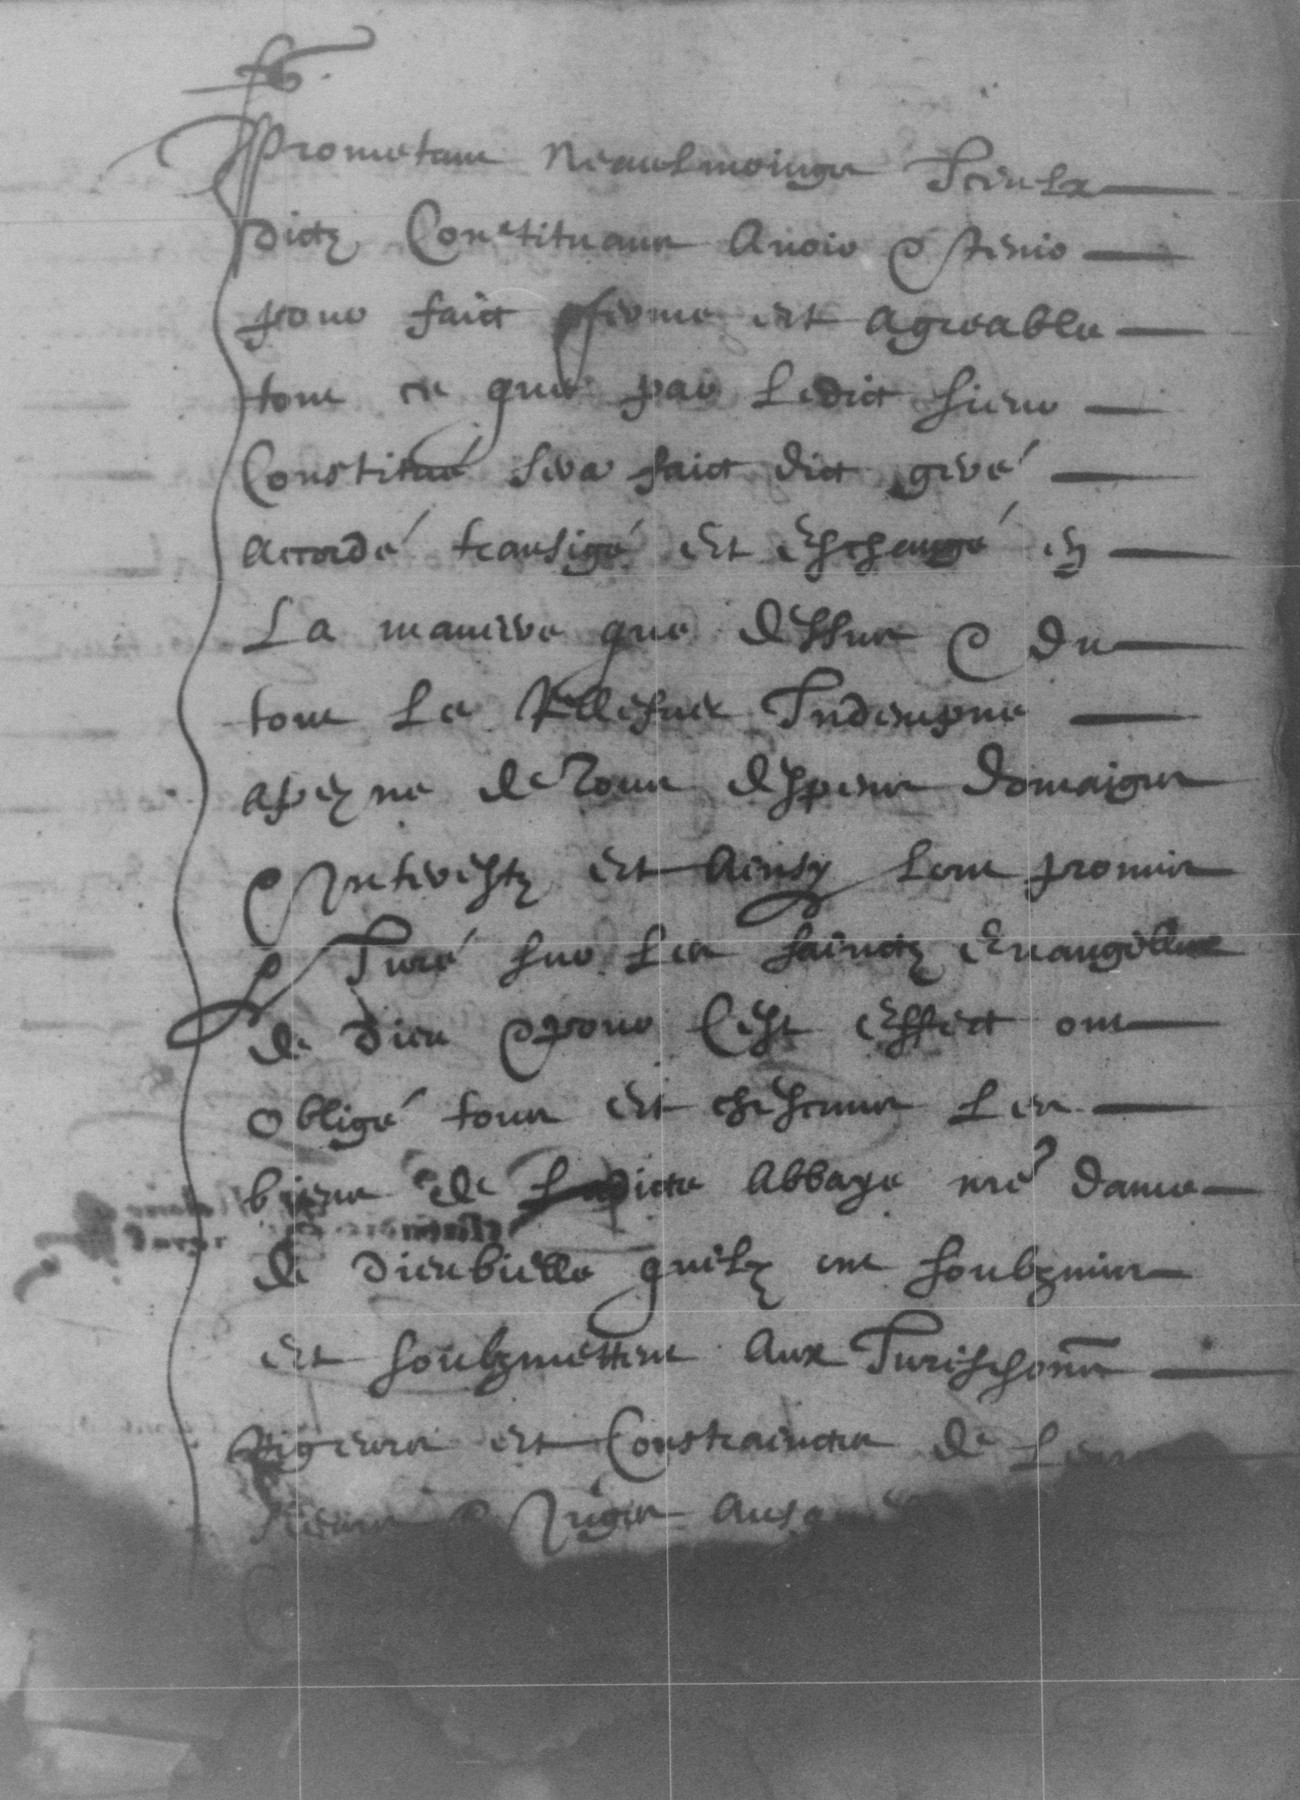 Prometant neaulmoings Iceulx
dictz Constituans avoir & tenir
pour faict ferme et agreable
tout ce que par ledict sieur
Constitué sera faict dict geré
accordé transigé et eschangé en
La maniere que dessus & du
tout le Rellever Indempne
a peyne de Tous despens domaiges
& Interestz et ainsy lont promis
& Juré sur les sainctz evangilles
de dieu & pour Cest effect ont
obligé tous et chescuns les
biens de Ladicte abbaye nre dame
de dieubielle quilz ont soubzmis
et soubzmettent aux Jurisdions
Rigeurs et Constrainctes de